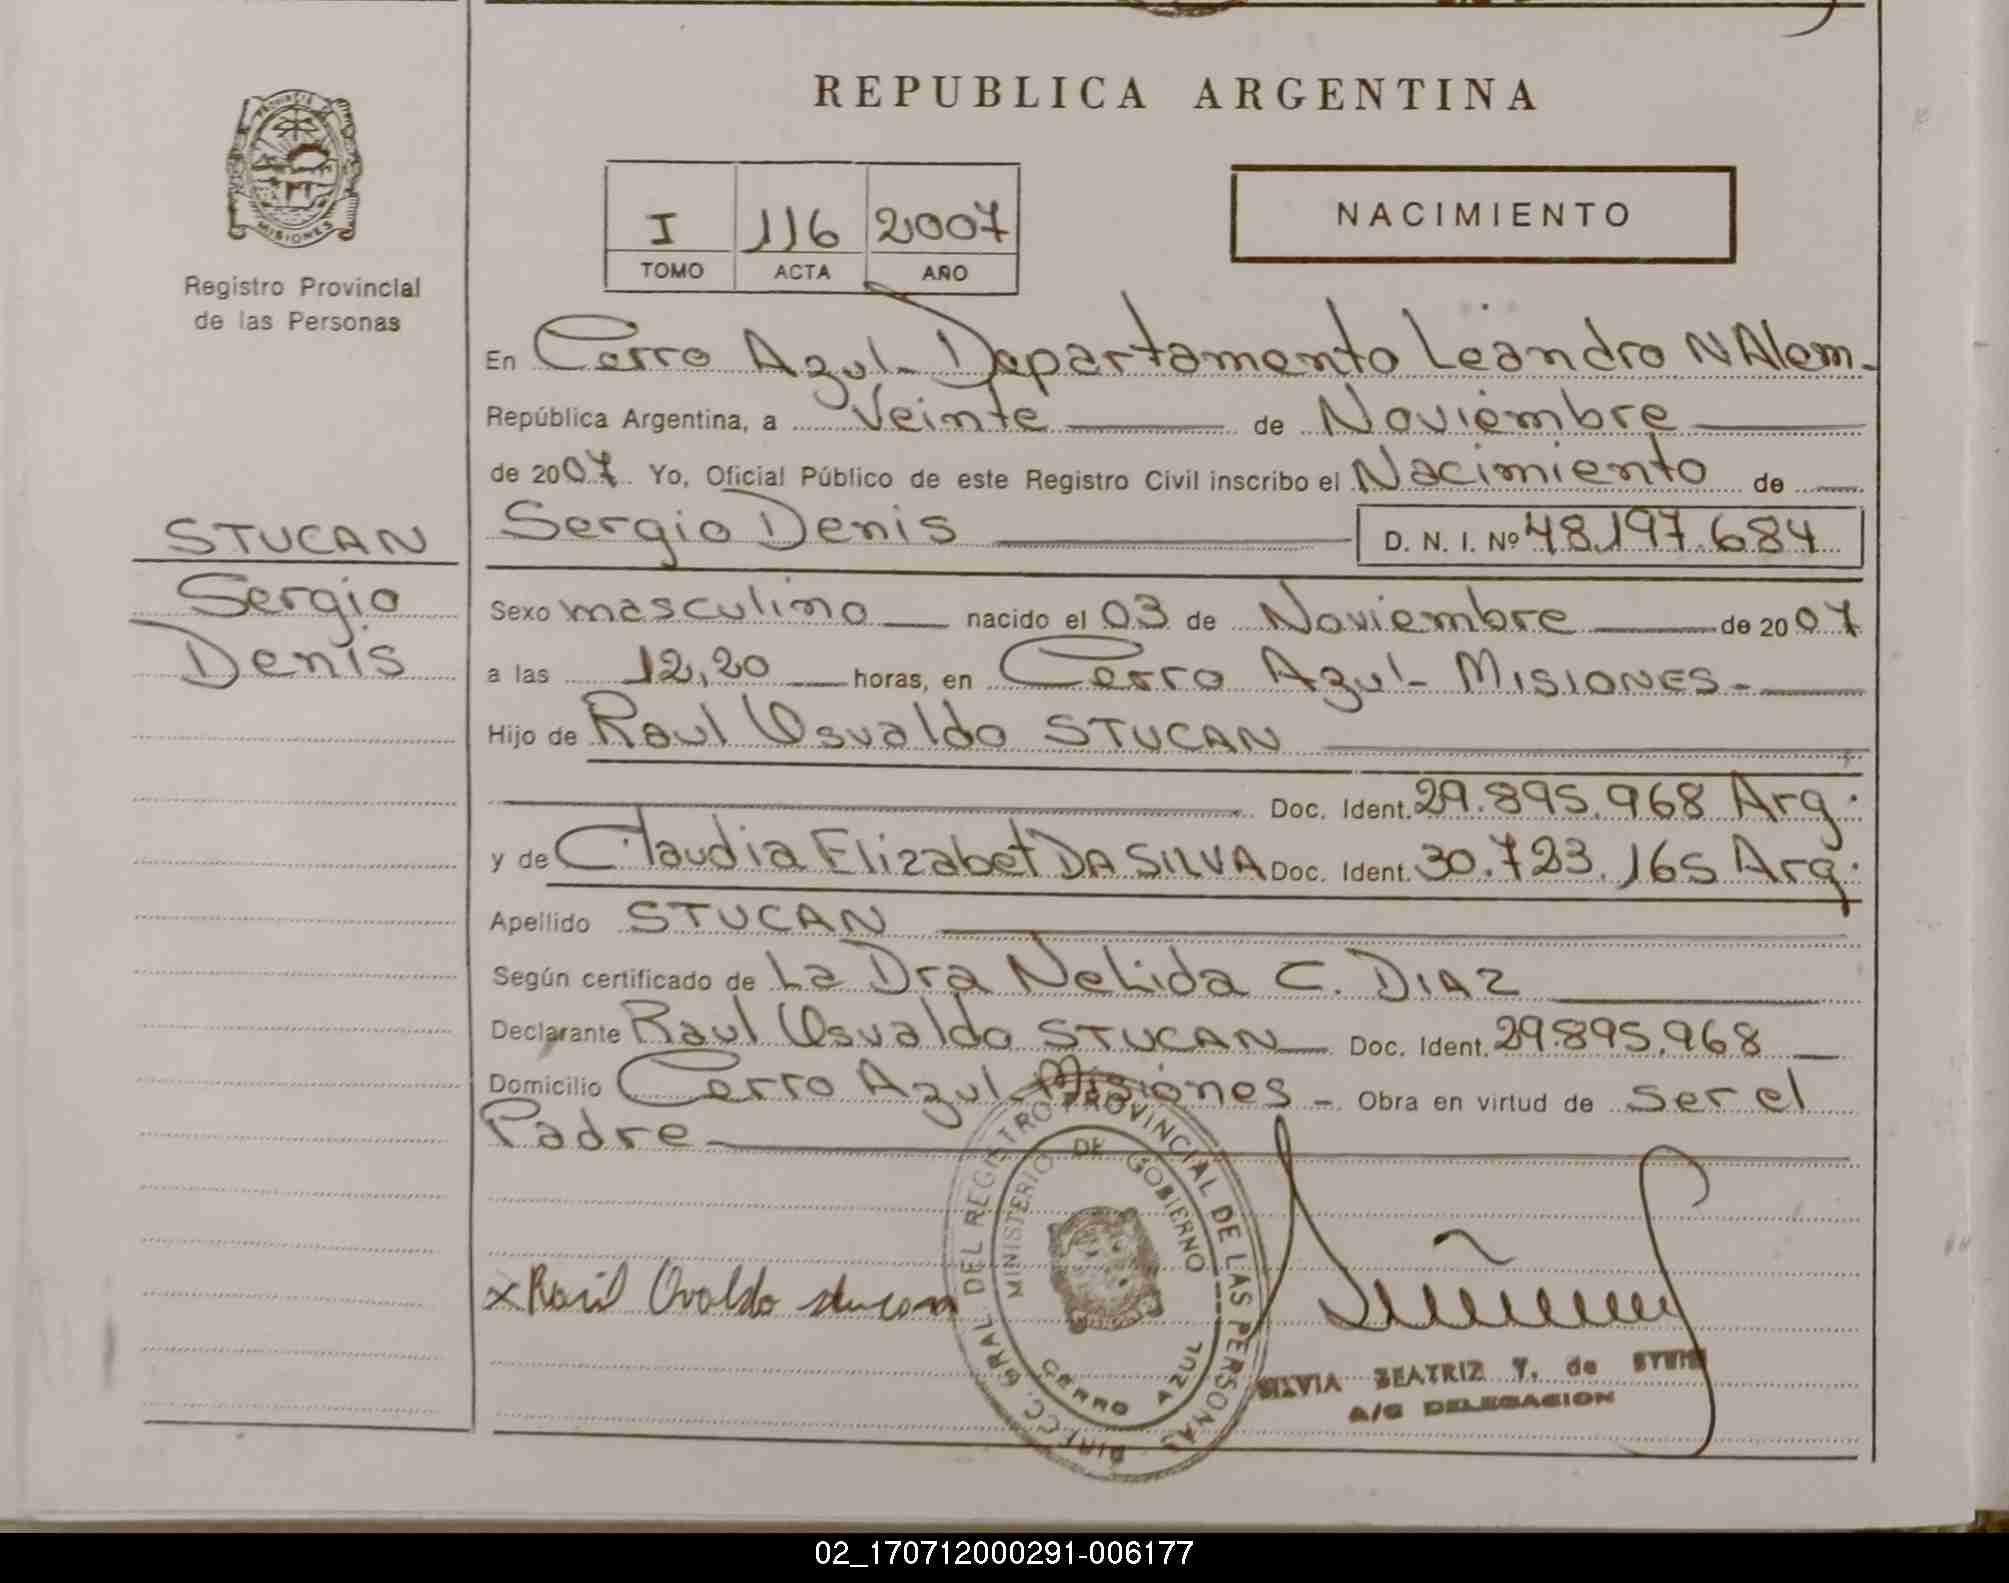 REPUBLICA ARGENTINA
MISIONES
Registro Provincial
de las Personas
I 116 2007
TOMO ACTA AÑO
NACIMIENTO
En Cerro Azul - Departamento Leandro N Alem -
República Argentina, a Veinte de Noviembre
de 2007. Yo, Oficial Público de este Registro Civil inscribo el Nacimiento de
Sergio Denis D. N. I. Nº 48.197.684
STUCAN
Sergio
Denis
Sexo masculino nacido el 03 de Noviembre de 2007
a las 12,20 horas, en Cerro Azul - MISIONES -
Hijo de Raul Osvaldo STUCAN
Doc. Ident. 29.895.968 Arg.
y de Claudia Elizabet DA SILVA Doc. Ident. 30.723.165 Arg.
Apellido STUCAN
Según certificado de La Dra Nelida C. DIAZ
Declarante Raul Osvaldo STUCAN Doc. Ident. 29.895.968
Domicilio Cerro Azul Misiones - Obra en virtud de ser el
Padre
GRAL. DEL REGISTRO PROVINCIAL DE LAS PERSONAS
MINISTERIO DE GOBIERNO
CERRO AZUL
x Raúl Ovaldo stucan
SILVIA BEATRIZ Y. de
A/C DELEGACION
02_170712000291-006177